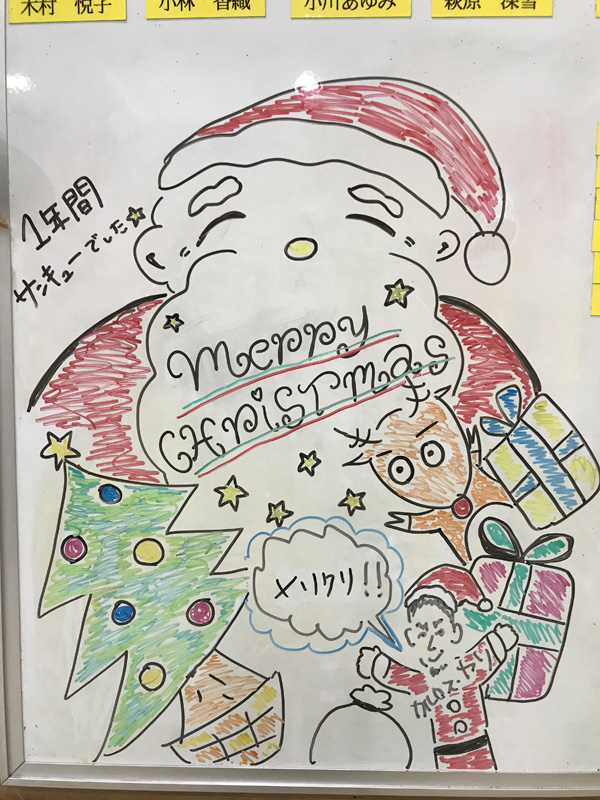 木村 悦子
小林 香織
小川あゆみ
萩原 深雪
1年間
サンキューでした☆
Merry
Christmas
メリクリ!!